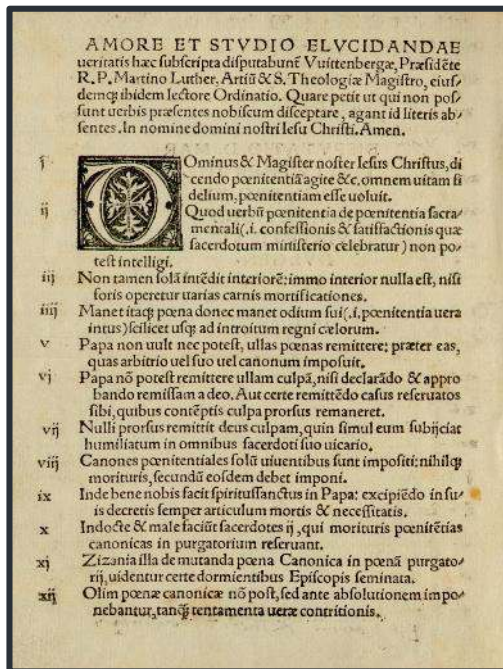 AMORE ET STVDIO ELVCIDANDAE
ueritatis hæc subscripta disputabunt̃ Vuittenbergæ, Præsidẽte
R. P. Martino Luther, Artiũ & S. Theologiæ Magistro, eius/
demq; ibidem lectore Ordinatio. Quare petit ut qui non pos/
sunt uerbis præsentes nobiscum disceptare, agant id literis ab/
sentes. In nomine domini nostri Iesu Christi. Amen.
j Ominus & Magister noster Iesus Christus, di
cendo pœnitentiã agite &c. omnem uitam fi
delium, pœnitentiam esse uoluit.
ij Quod uerbũ pœnitentia de pœnitentia sacra/
mentali (.i. confessionis & satisfactionis quæ
sacerdotum ministerio celebratur) non po/
test intelligi.
iij Non tamen solã intẽdit interiorẽ: immo interior nulla est, nisi
foris operetur uarias carnis mortificationes.
iiij Manet itaq; pœna donec manet odium sui (.i. pœnitentia uera
intus) scilicet usq; ad introitum regni cælorum.
v Papa non uult nec potest, ullas pœnas remittere: præter eas,
quas arbitrio uel suo uel canonum imposuit.
vj Papa nõ potest remittere ullam culpã, nisi declarãdo & appro
bando remissam a deo. Aut certe remittẽdo casus reseruatos
sibi, quibus contẽptis culpa prorsus remaneret.
vij Nulli prorsus remittit deus culpam, quin simul eum subijciat
humiliatum in omnibus sacerdoti suo uicario.
viij Canones pœnitentiales solũ uiuentibus sunt impositi: nihilq;
morituris, secundũ eosdem debet imponi.
ix Inde bene nobis facit spiritussanctus in Papa: excipiẽdo in su/
is decretis semper articulum mortis & necessitatis.
x Indocte & male faciũt sacerdotes ij, qui morituris pœnitẽtias
canonicas in purgatorium reseruant.
xj Zizania illa de mutanda pœna Canonica in pœnã purgato/
rij, uidentur certe dormientibus Episcopis seminata.
xij Olim pœnæ canonicæ nõ post, sed ante absolutionem impo/
nebantur, tanq̃ tentamenta ueræ contritionis.